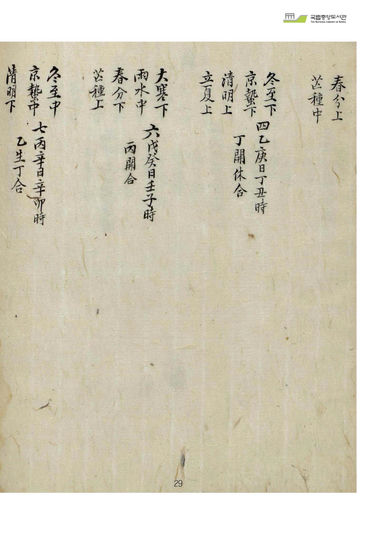 국립중앙도서관
春分上
芒種中
冬至下
京蟄下 四乙庚日丁丑時
清明上 丁開休合
立夏上
大寒下
雨水中 六戊癸日壬子時
春分下 丙開合
芒種上
冬至中
京蟄中 七丙辛日辛卯時
清明下 乙生丁合
29